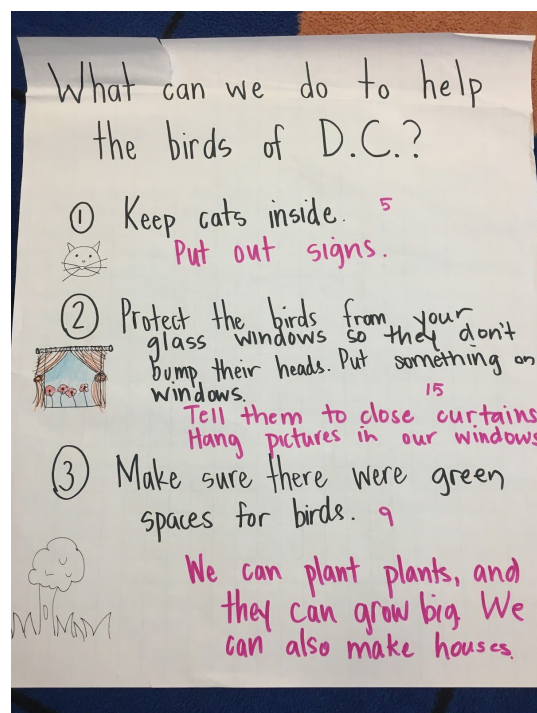 What can we do to help
the birds of D.C.?
1 Keep cats inside. 5
Put out signs.
2 Protect the birds from your
glass windows so they don't
bump their heads. Put something on
windows.
15
Tell them to close curtains
Hang pictures in our windows
3 Make sure there were green
spaces for birds. 9
We can plant plants, and
they can grow big. We
can also make houses.